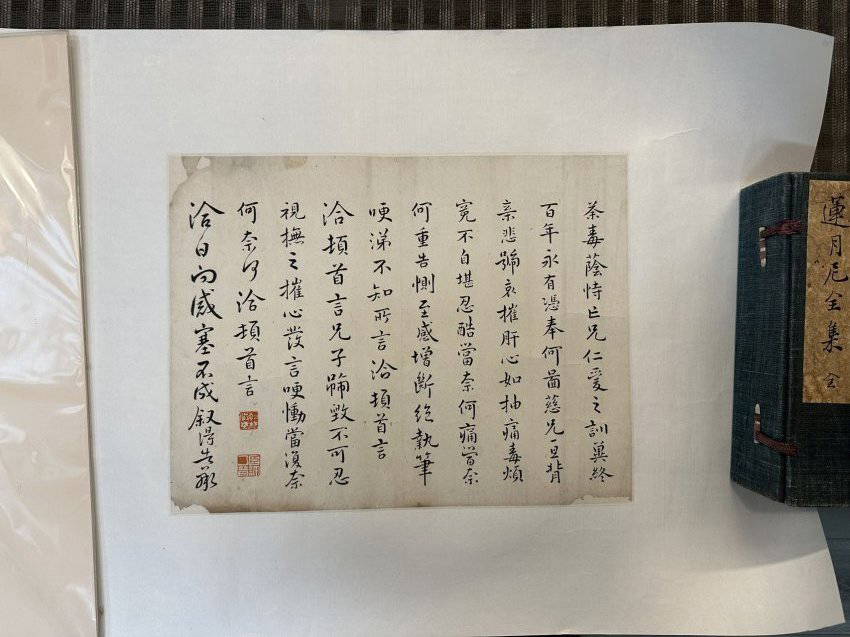 荼毒蔭恃亡兄仁愛之訓冀終
百年永有憑奉何圖慈兄一旦背
棄悲號哀摧肝心如抽痛毒煩
冤不自堪忍酷當奈何痛當奈
何重告惻至感增斷絕執筆
哽涕不知所言洽頓首言
洽頓首言兄子號毀不可忍
視撫之摧心發言哽慟當復奈
何奈何洽頓首言
洽日向感塞不成叙得告承
蓮月尼全集 全